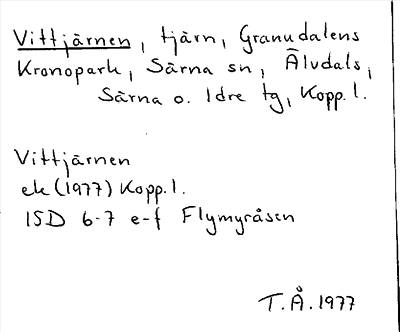 Vittjärnen, tjärn, Granudalens
Kronopark, Särna sn, Älvdals,
Särna o. Idre tg, Kopp.l.
Vittjärnen
ek (1977) Kopp.l.
15D 6-7 e-f Flymyråsen
T.Å. 1977